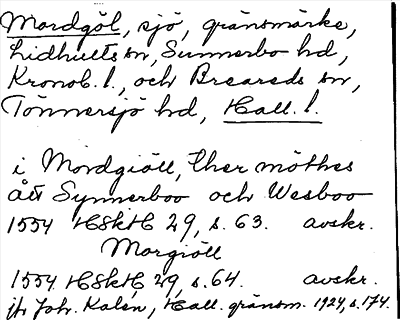 Mordgöl, sjö, gränsmärke,
Lidhults sn, Sunnerbo hd,
Kronob. l., och Breareds sn,
Tönnersjö hd, Hall. l.
i Mordgiöll, ther möthes
ått Synnerboo och Wesboo
1554 HSkH 29, s. 63. avskr.
Morgiöll
1554 HSkH 29, s. 64. avskr.
jfr Joh. Kalén, Hall. gränsm. 1924, s. 174.